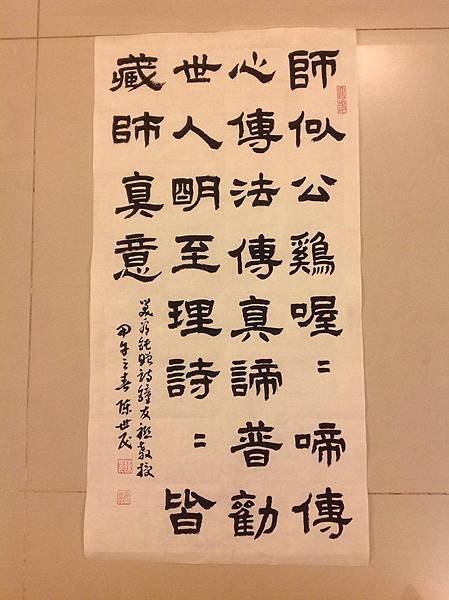 師似公鷄喔〻啼傳
心傳法傳真諦普勸
世人明至理詩〻皆
藏師真意
純贈詩鍾友聯教授
甲午之春陳世民